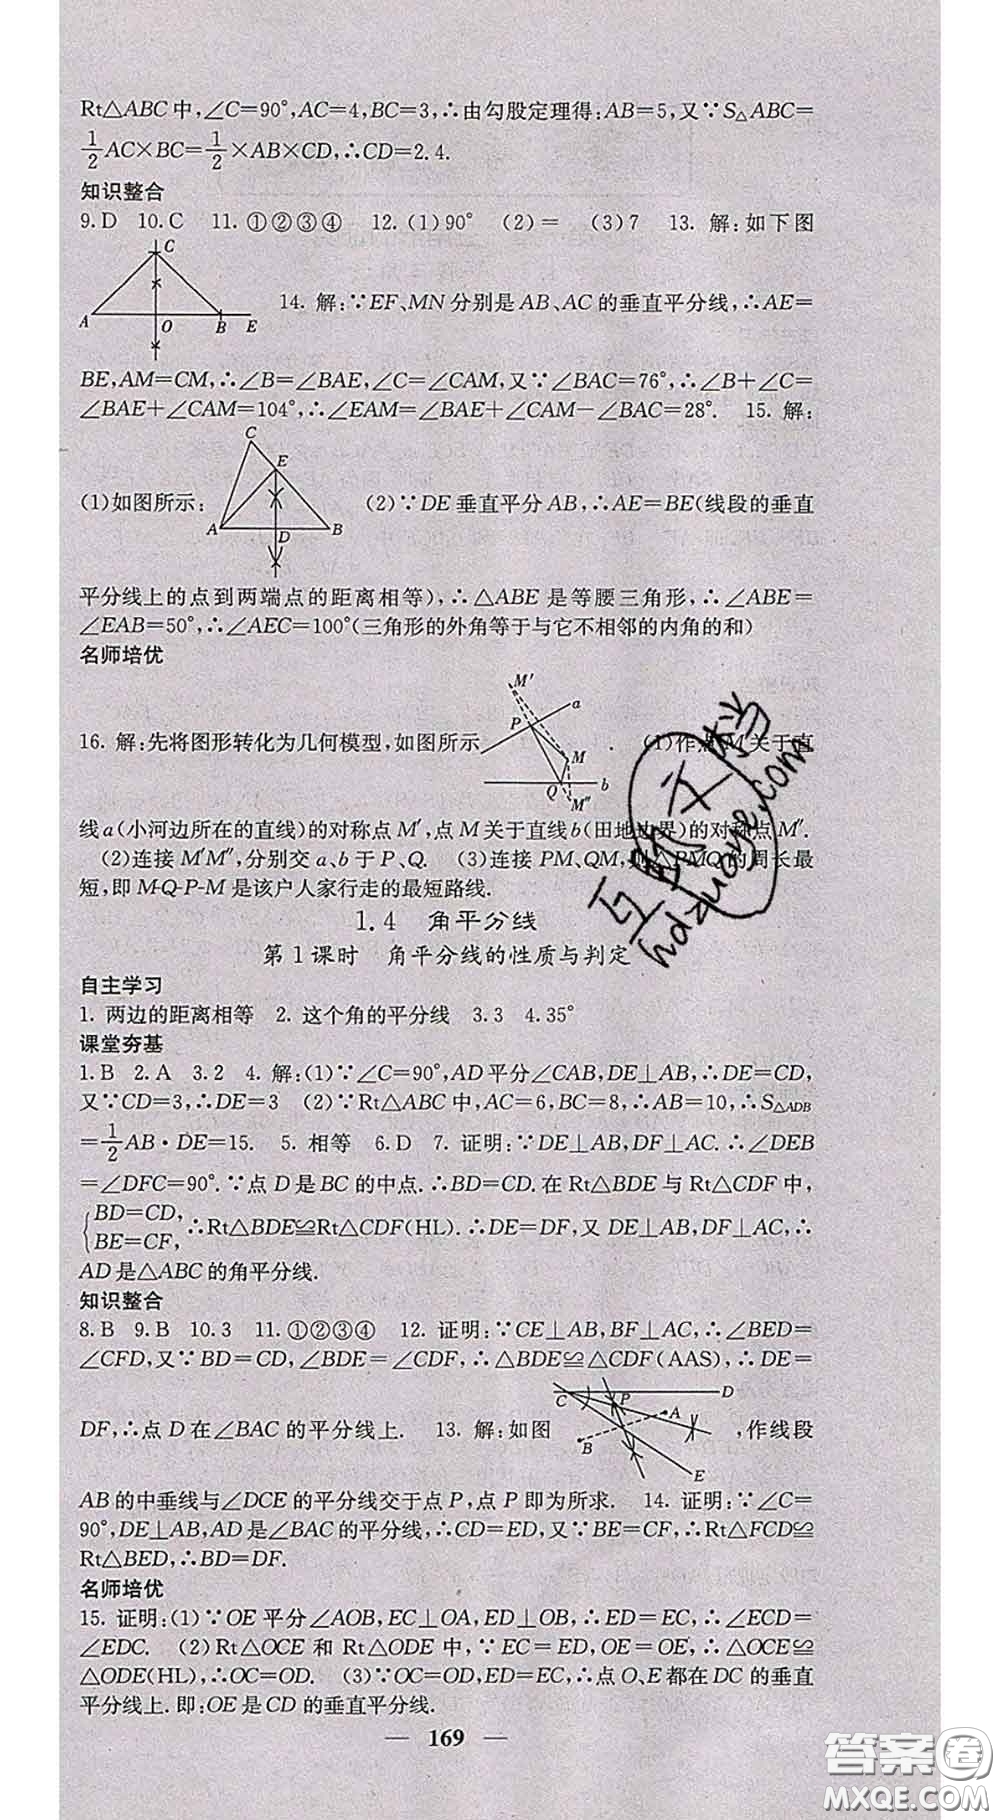 Rt△ABC中,∠C=90°,AC=4,BC=3,∴由勾股定理得:AB=5,又∵S△ABC=
1/2AC×BC=1/2×AB×CD,∴CD=2.4.
知识整合
9. D 10. C 11. ①②③④ 12. (1)90° (2)= (3)7 13. 解:如下图
C
A O B E
14. 解:∵EF、MN分别是AB、AC的垂直平分线,∴AE=
BE,AM=CM,∴∠B=∠BAE,∠C=∠CAM,又∵∠BAC=76°,∴∠B+∠C=
∠BAE+∠CAM=104°,∴∠EAM=∠BAE+∠CAM-∠BAC=28°. 15. 解:
C
E
A D B
(1)如图所示: (2)∵DE垂直平分AB,∴AE=BE(线段的垂直
平分线上的点到两端点的距离相等),∴△ABE是等腰三角形,∴∠ABE=
∠EAB=50°,∴∠AEC=100°(三角形的外角等于与它不相邻的内角的和)
名师培优
M′
a
P
M
Q b
M″
16. 解:先将图形转化为几何模型,如图所示 . (1)作点M关于直
线a(小河边所在的直线)的对称点M′,点M关于直线b(田地边界)的对称点M″.
(2)连接M′M″,分别交a、b于P、Q. (3)连接PM、QM,则△PMQ的周长最
短,即M-Q-P-M是该户人家行走的最短路线.
1.4 角平分线
第1课时 角平分线的性质与判定
自主学习
1. 两边的距离相等 2. 这个角的平分线 3. 3 4. 35°
课堂夯基
1. B 2. A 3. 2 4. 解:(1)∵∠C=90°,AD平分∠CAB,DE⊥AB,∴DE=CD,
又∵CD=3,∴DE=3 (2)∵Rt△ABC中,AC=6,BC=8,∴AB=10,∴S△ADB
=1/2AB·DE=15. 5. 相等 6. D 7. 证明:∵DE⊥AB,DF⊥AC.∴∠DEB
=∠DFC=90°.∵点D是BC的中点.∴BD=CD.在Rt△BDE与Rt△CDF中,
{BD=CD,
BE=CF, ∴Rt△BDE≌Rt△CDF(HL).∴DE=DF,又DE⊥AB,DF⊥AC,∴
AD是△ABC的角平分线.
知识整合
8. B 9. B 10. 3 11. ①②③④ 12. 证明:∵CE⊥AB,BF⊥AC,∴∠BED=
∠CFD,又∵BD=CD,∠BDE=∠CDF,∴△BDE≌△CDF(AAS),∴DE=
C P D
A
B
E
DF,∴点D在∠BAC的平分线上. 13. 解:如图 ,作线段
AB的中垂线与∠DCE的平分线交于点P,点P即为所求. 14. 证明:∵∠C=
90°,DE⊥AB,AD是∠BAC的平分线,∴CD=ED,又∵BE=CF,∴Rt△FCD≌
Rt△BED,∴BD=DF.
名师培优
15. 证明:(1)∵OE平分∠AOB,EC⊥OA,ED⊥OB,∴ED=EC,∴∠ECD=
∠EDC. (2)Rt△OCE和Rt△ODE中,∵EC=ED,OE=OE,∴△OCE≌
△ODE(HL),∴OC=OD. (3)∵OC=OD,ED=EC,∴点O、E都在DC的垂直
平分线上.即:OE是CD的垂直平分线.
— 169 —
互助文档
hdzuoye.com
答案圈
MXQE.COM